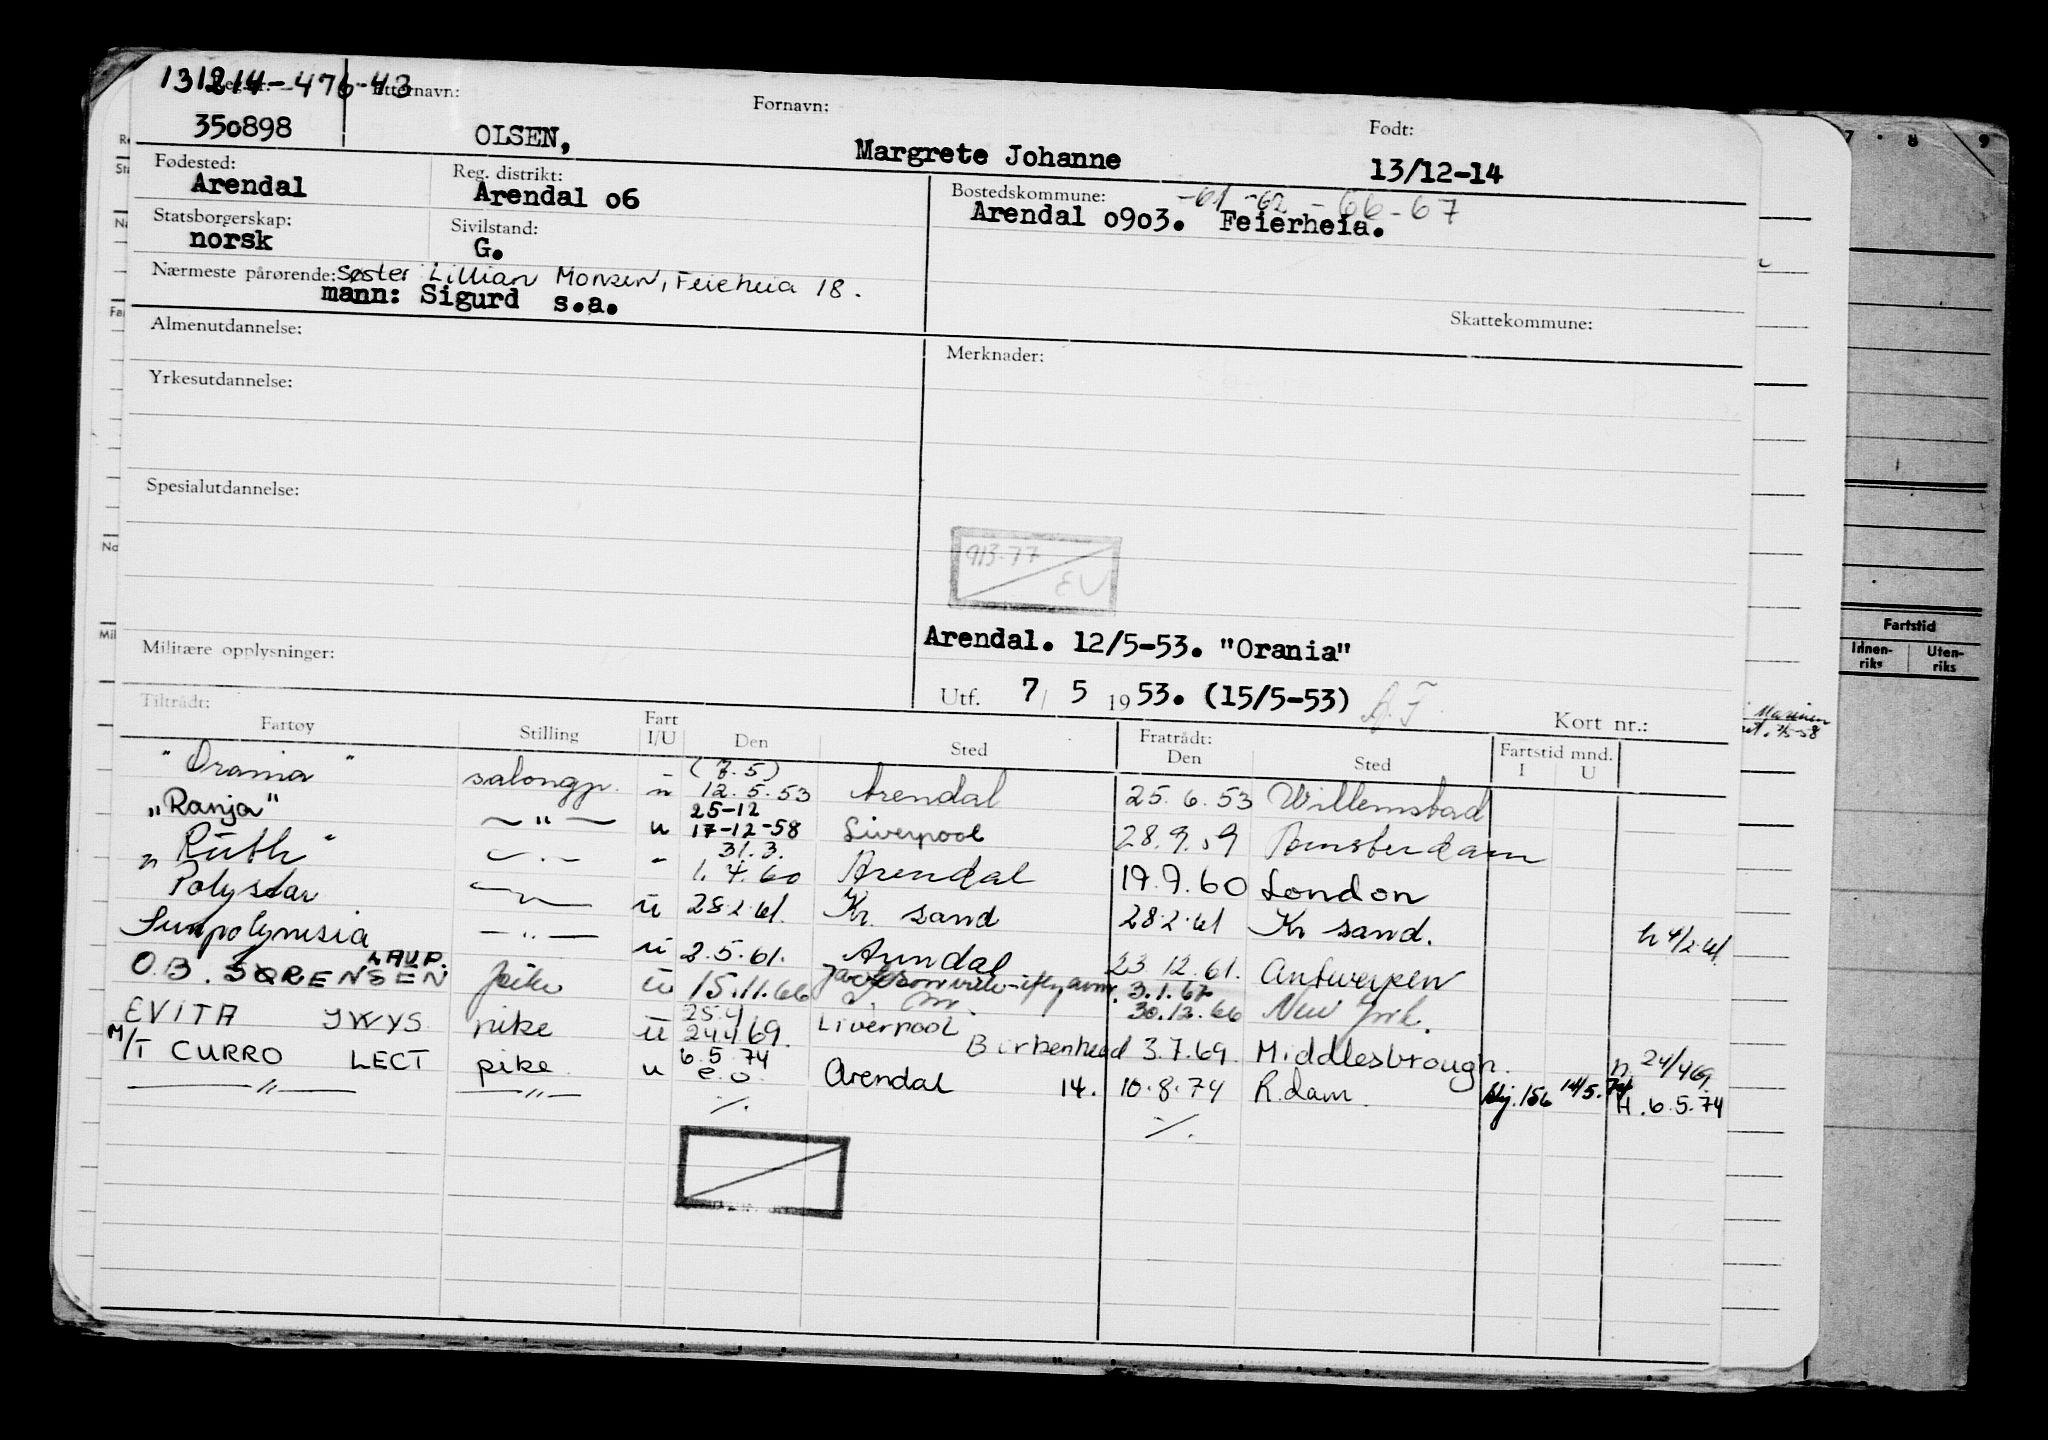 131214-476-43
Reg. nr.: Etternavn: Fornavn: Født:
350898 OLSEN, Margrete Johanne 13/12-14
Fødested: Reg. distrikt: Bostedskommune: -61 -62 -66-67
Arendal Arendal o6 Arendal o9o3. Feierheia.
Statsborgerskap: Sivilstand:
norsk G.
Nærmeste pårørende: Søster Lillian Monsen, Feieheia 18.
mann: Sigurd s.a.
Skattekommune:
Almenutdannelse: Merknader:
Yrkesutdannelse:
Spesialutdannelse:
913-77
EV
Militære opplysninger:
Arendal. 12/5-53. "Orania"
Utf. 7/ 5 1953. (15/5-53)
Kort nr.:
Tiltrådt: Fratrådt:
Fartøy Stilling Fart I/U Den Sted Den Sted Fartstid mnd. I U
"Orania" salongp. (7.5) 12.5.53 Arendal 25.6.53 Willemstad
"Ranja" — " — u 25-12 17-12-58 Liverpool 28.9.59 Amsterdam
"Ruth" — " — 31.3. 1.4.60 Arendal 19.9.60 London
Polystar u 28.2.61. Kr. sand 28.2.61 Kr sand. h 4/2.61
Sunpolynesia — " — u 2.5.61. Arendal 23.12.61. Antwerpen
O.B. SØRENSEN LAUP. pike u 15.11.66 Jacksonville 3.1.67 30.12.66 New York.
EVITA JWYS pike u 25.4 24.4.69. Liverpool Birkenhead 3.7.69. Middlesbrough. n. 24/4 69.
M/T CURRO LECT pike u 6.5.74 e.o. Arendal 14. 10.8.74 R.dam. 156 14/5.74 H. 6.5.74
— " — — " — ./. ./.
7 · 8 9
Fartstid
Innenriks Utenriks